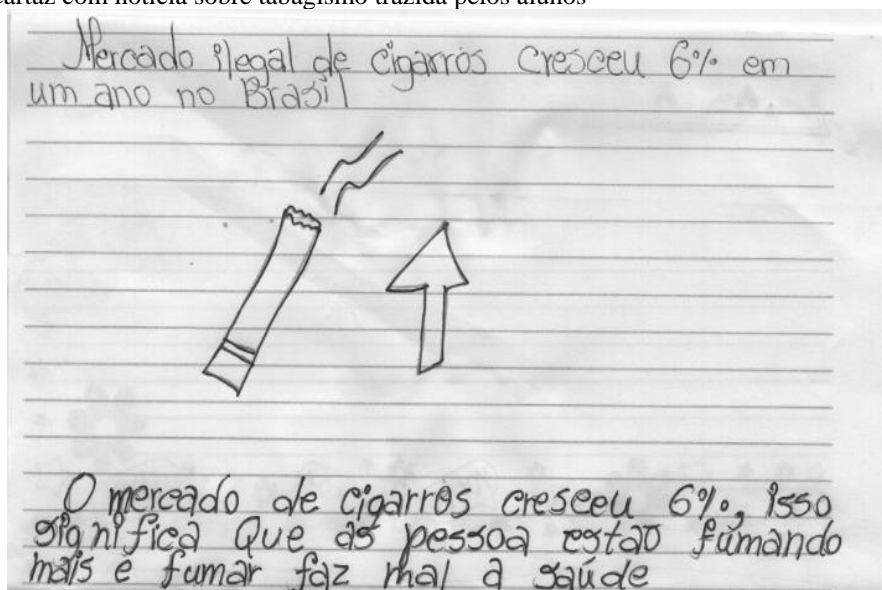 cartaz com notícia sobre tabagismo trazida pelos alunos
Mercado ilegal de cigarros cresceu 6% em
um ano no Brasil
O mercado de cigarros cresceu 6%, isso
significa Que as pessoa estão fumando
mais e fumar faz mal a saúde